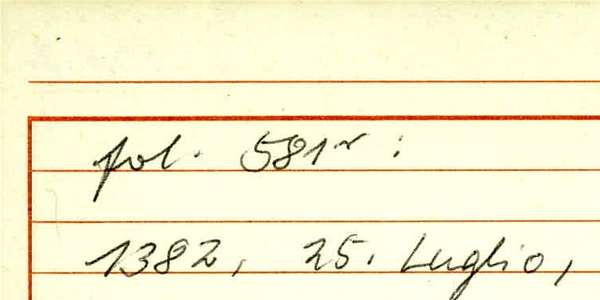 fol. 581r :
1382, 25. Luglio,